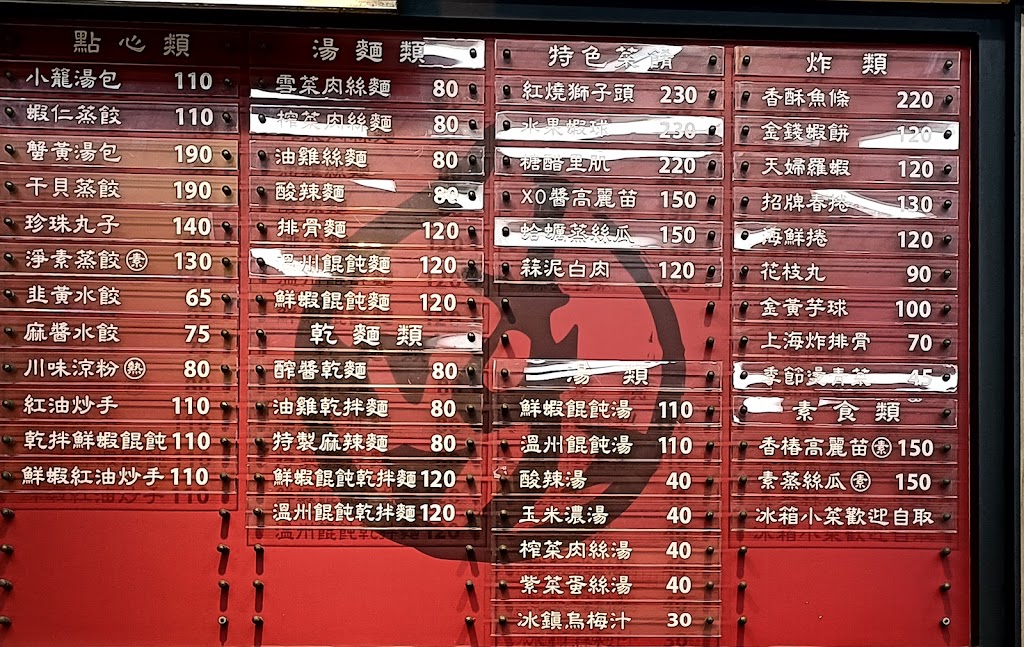 點心類
小龍湯包 110
蝦仁蒸餃 110
蟹黃湯包 190
干貝蒸餃 190
珍珠丸子 140
淨素蒸餃 素 130
韭黃水餃 65
麻醬水餃 75
川味涼粉 熱 80
紅油炒手 110
乾拌鮮蝦餛飩 110
鮮蝦紅油炒手 110
湯麵類
雪菜肉絲麵 80
榨菜肉絲麵 80
油雞絲麵 80
酸辣麵 80
排骨麵 120
溫州餛飩麵 120
鮮蝦餛飩麵 120
乾麵類
醡醬乾麵 80
油雞乾拌麵 80
特製麻辣麵 80
鮮蝦餛飩乾拌麵 120
溫州餛飩乾拌麵 120
特色菜餚
紅燒獅子頭 230
水果蝦球 230
糖醋里肌 220
XO醬高麗苗 150
蛤蠣蒸絲瓜 150
蒜泥白肉 120
湯類
鮮蝦餛飩湯 110
溫州餛飩湯 110
酸辣湯 40
玉米濃湯 40
榨菜肉絲湯 40
紫菜蛋絲湯 40
冰鎮烏梅汁 30
炸類
香酥魚條 220
金錢蝦餅 120
天婦羅蝦 120
招牌春捲 130
海鮮捲 120
花枝丸 90
金黃芋球 100
上海炸排骨 70
季節燙青菜 45
素食類
香椿高麗苗 素 150
素蒸絲瓜 素 150
冰箱小菜歡迎自取